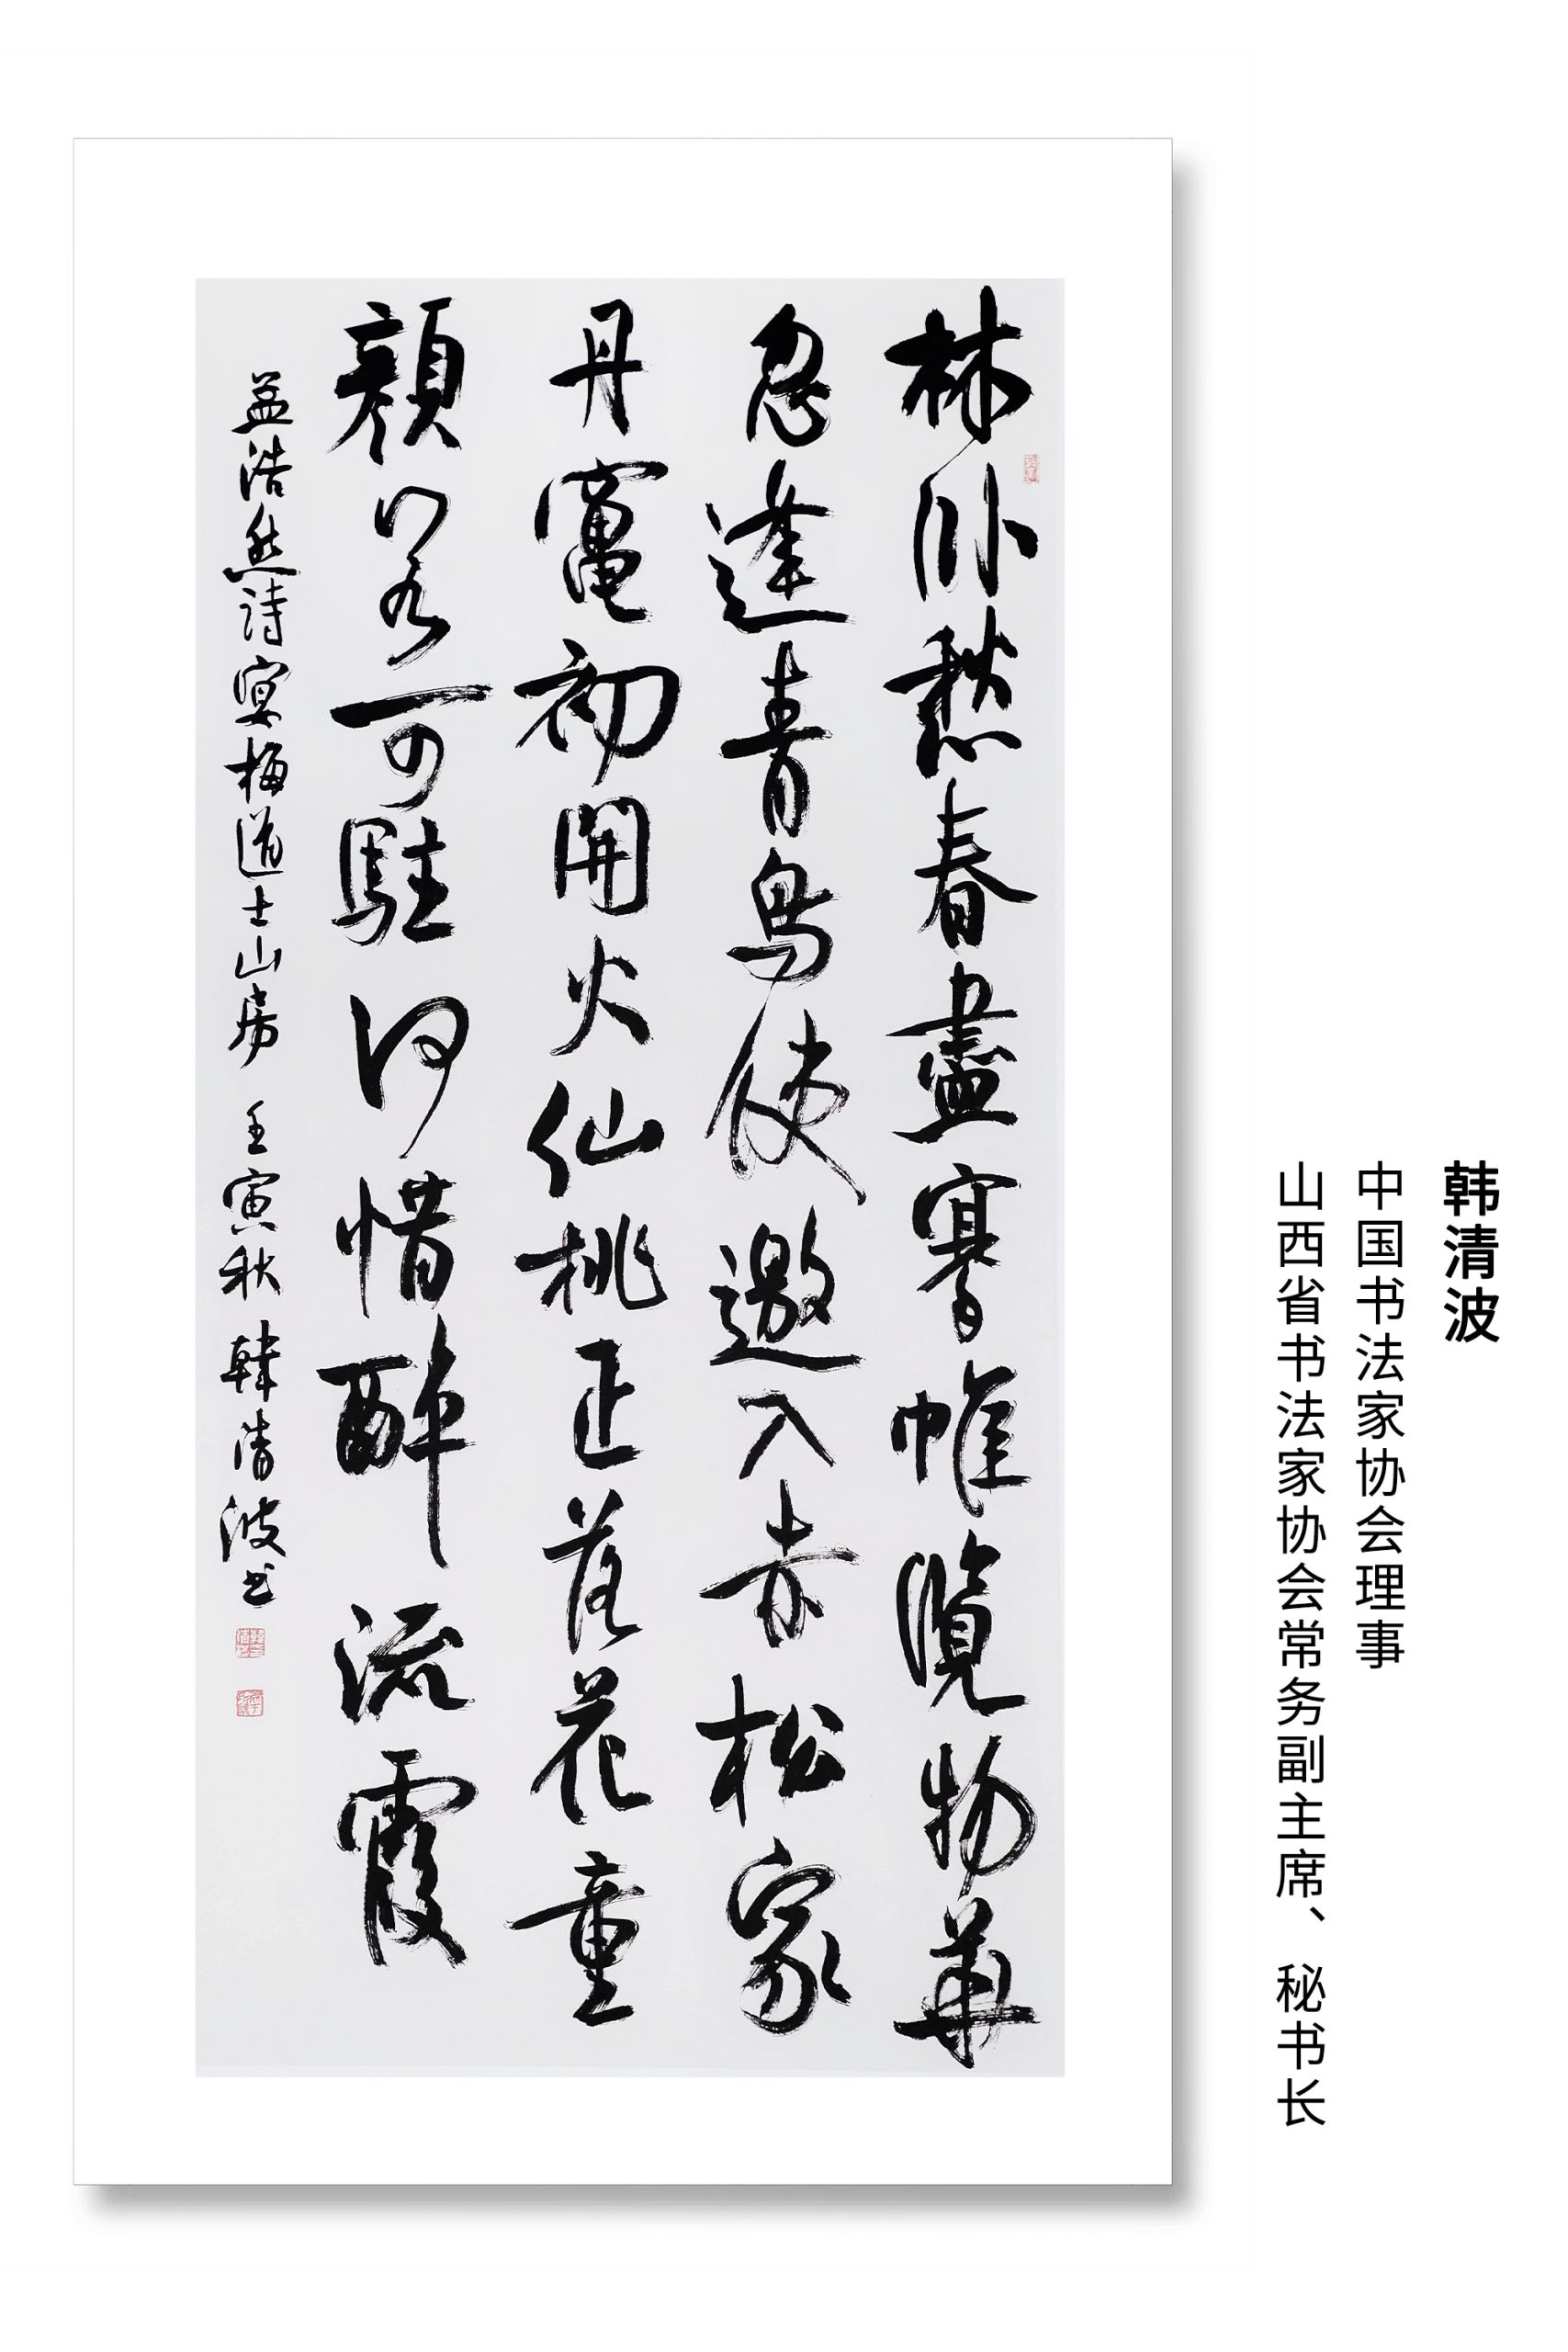 韩清波
中国书法家协会理事
山西省书法家协会常务副主席、秘书长
林卧愁春盡搴帷覽物華
忽逢青鳥使邀入赤松家
丹竈初開火仙桃正落花童
顏若可駐何惜醉流霞
孟浩然詩宴梅道士山房 壬寅秋 韓清波书